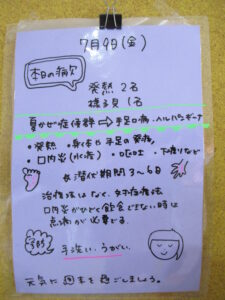 7月9日(金)
本日の病欠
発熱 2名
様子見 1名
夏かぜ症候群⇨手足口病、ヘルパンギーナ
・発熱 ・身体や手足の発疹
・口内炎(水疱) ・嘔吐 ・下痢など
潜伏期間 3〜6日
治療法はなく、対症療法
口内炎がひどく飲食できない時は
点滴が必要です。
手洗い、うがい、
元気に週末を過ごしましょう。